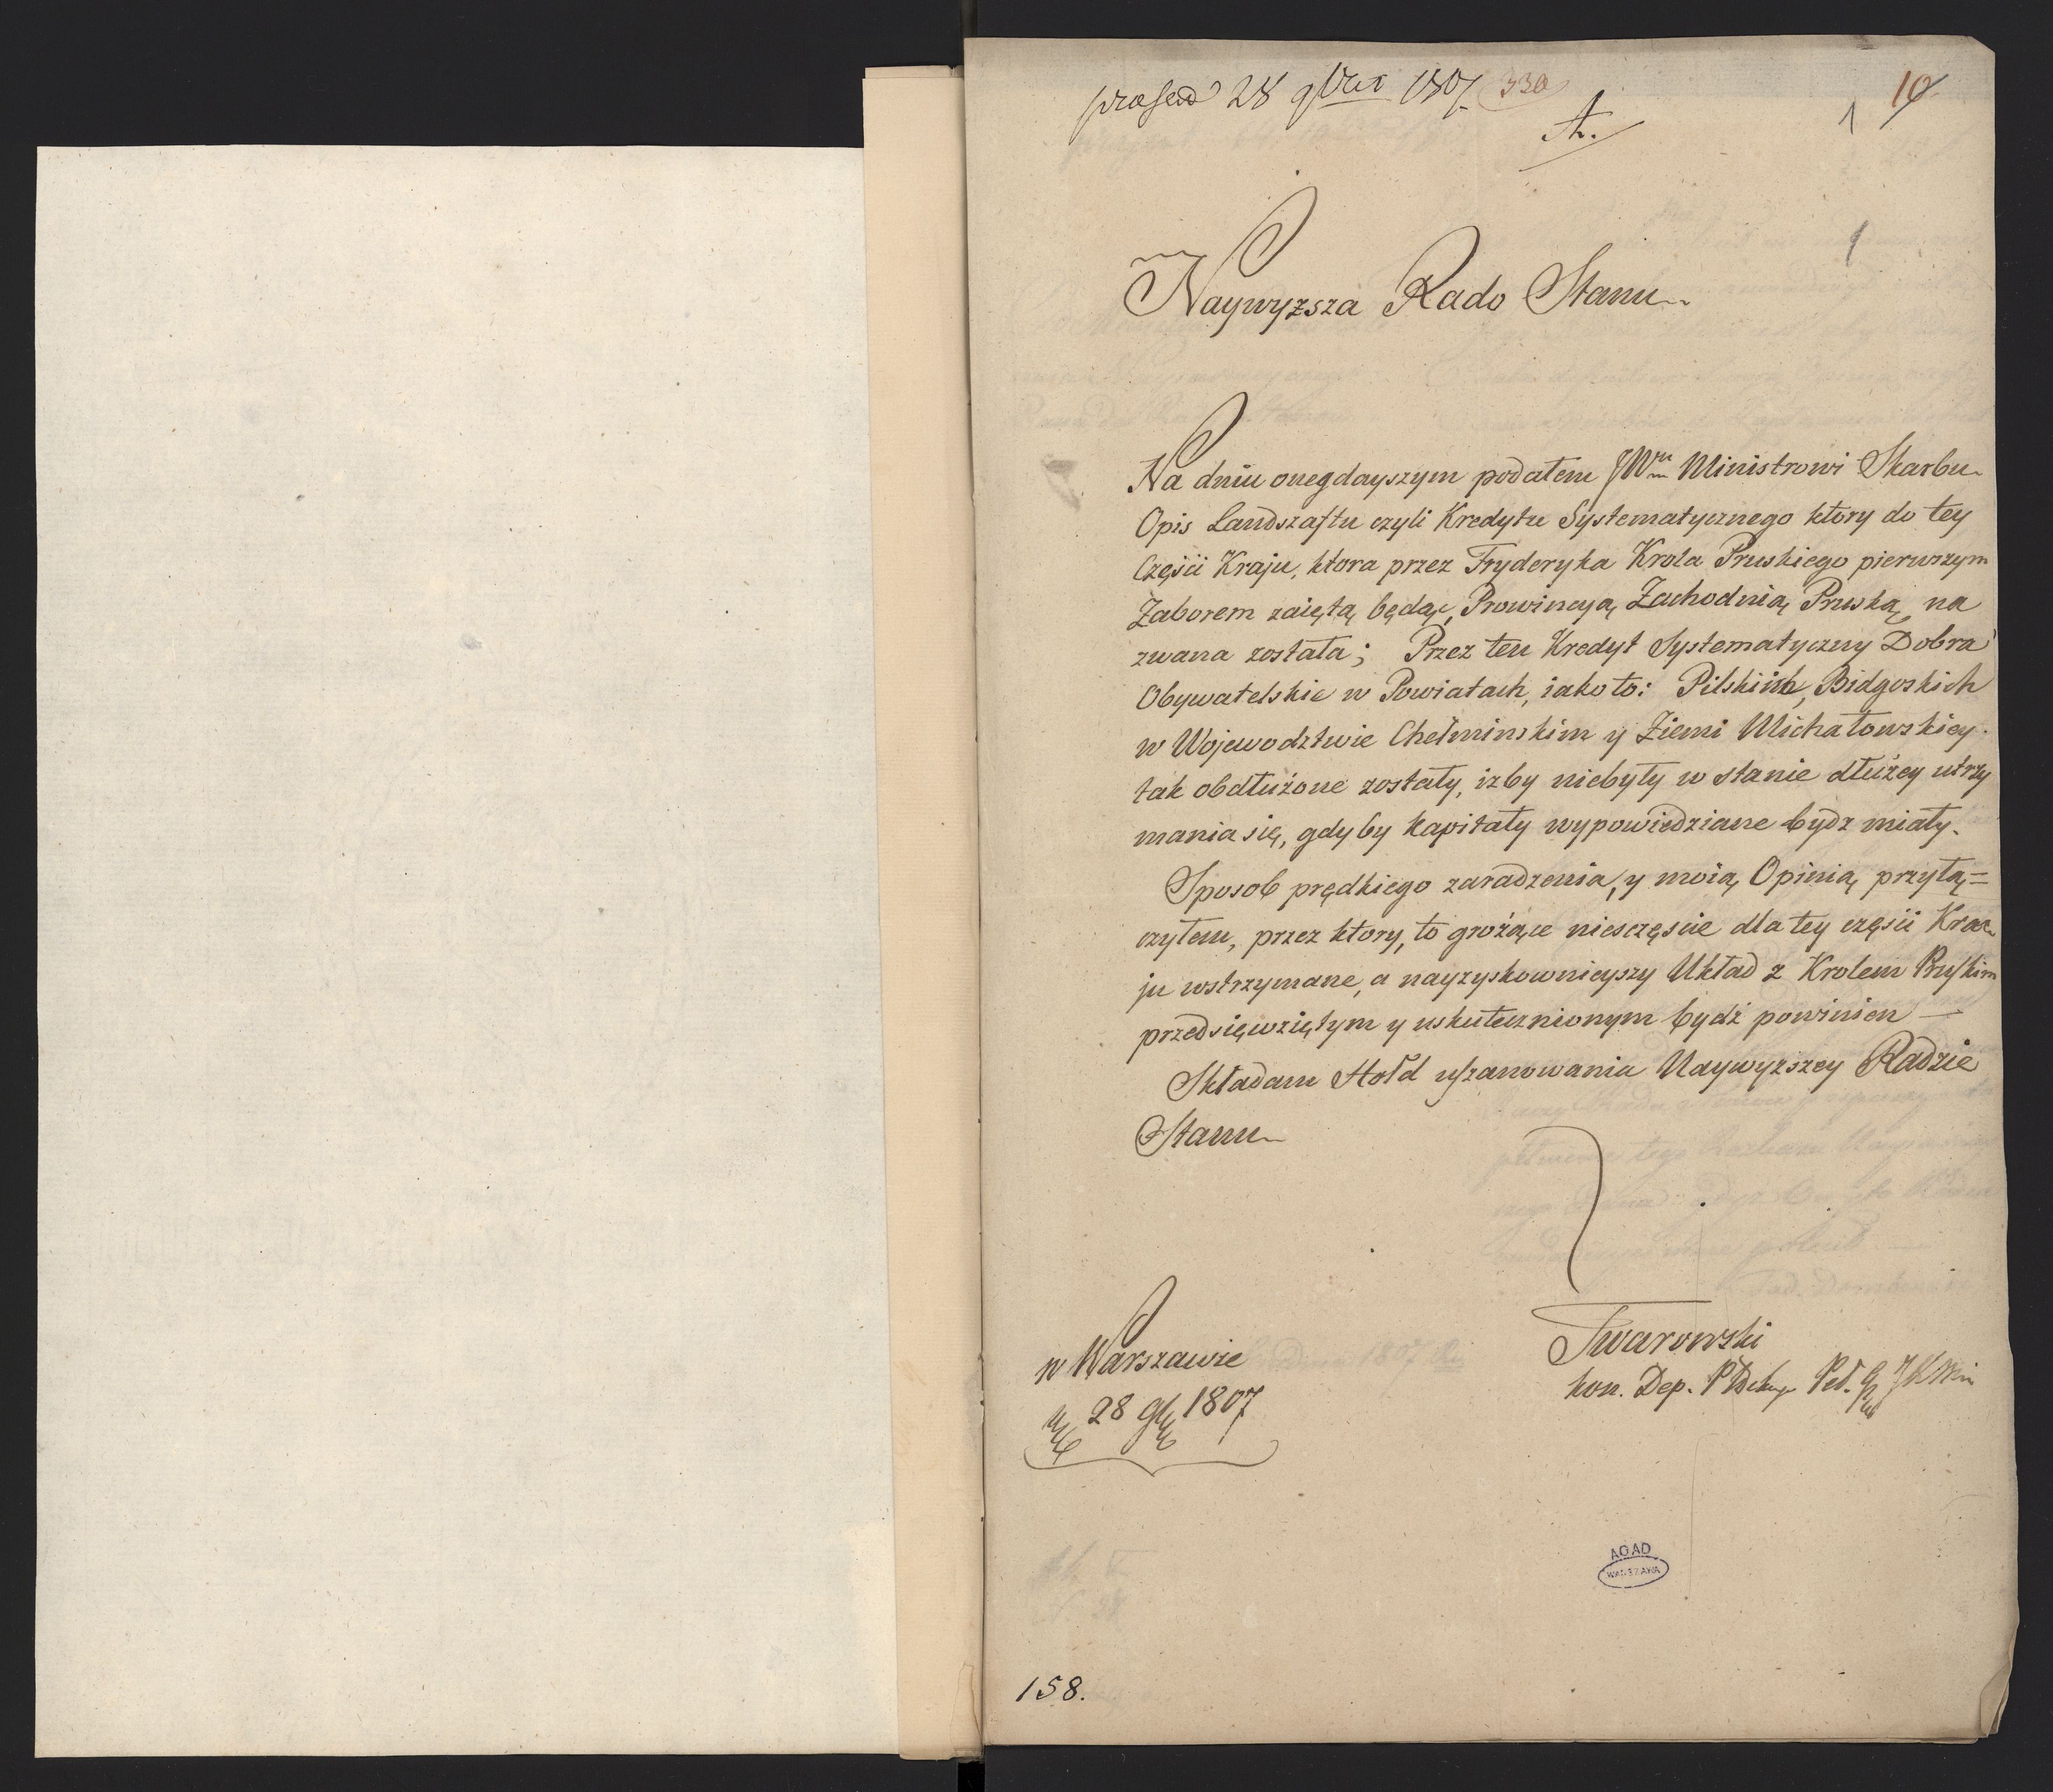 præsend 28 9bris 1807 330
A.
1 10
1
Naywyzsza Rado Stanu
Na dniu onegdayszym podałem JWmu Ministrowi Skarbu
Opis Landszaftu czyli Kredytu Systematycznego ktory do tey
Częsci Kraju, ktora przez Fryderyka Krola Pruskiego pierwszym
Zaborem zaiętą będąc, Prowincyą Zachodnią Pruską na
zwana została; Przez ten Kredyt Systematyczny Dobra
Obywatelskie w Powiatach, iako to: Pilskich, Bidgoskich
w Wojewodztwie Chełminskim y Ziemi Michałowskiey
tak obdłużone zostały, izby niebyły w stanie dłużey utrzy
mania się, gdyby kapitały wypowiedziane bydz miały.
Sposob prędkiego zaradzenia, y moią Opinią przyłą=
czyłem, przez ktory, to grożące niesczęscie dla tey częsci Kra
ju wstrzymane, a nayzyskownieyszy Układ z Krolem Pruskim
przedsięwziętym y uskutecznionym bydź powinien —
Składam Hołd uszanowania Naywyzszey Radzie
Stanu
w Warszawie
28 9b 1807
Twarowski
kon. Dep.
AGAD
WARSZAWA
158.